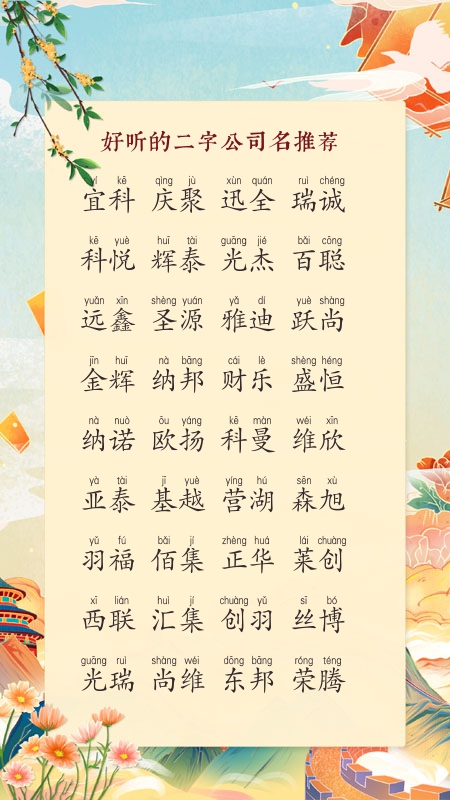 好听的二字公司名推荐
yí kē qìng jù xùn quán ruì chéng
宜科 庆聚 迅全 瑞诚
kē yuè huī tài guāng jié bǎi cōng
科悦 辉泰 光杰 百聪
yuǎn xīn shèng yuán yǎ dí yuè shàng
远鑫 圣源 雅迪 跃尚
jīn huī nà bāng cái lè shèng héng
金辉 纳邦 财乐 盛恒
nà nuò ōu yáng kē màn wéi xīn
纳诺 欧扬 科曼 维欣
yà tài jī yuè yíng hú sēn xù
亚泰 基越 营湖 森旭
yǔ fú bǎi jí zhèng huá lái chuàng
羽福 佰集 正华 莱创
xī lián huì jí chuàng yǔ sī bó
西联 汇集 创羽 丝博
guāng ruì shàng wéi dōng bāng róng téng
光瑞 尚维 东邦 荣腾